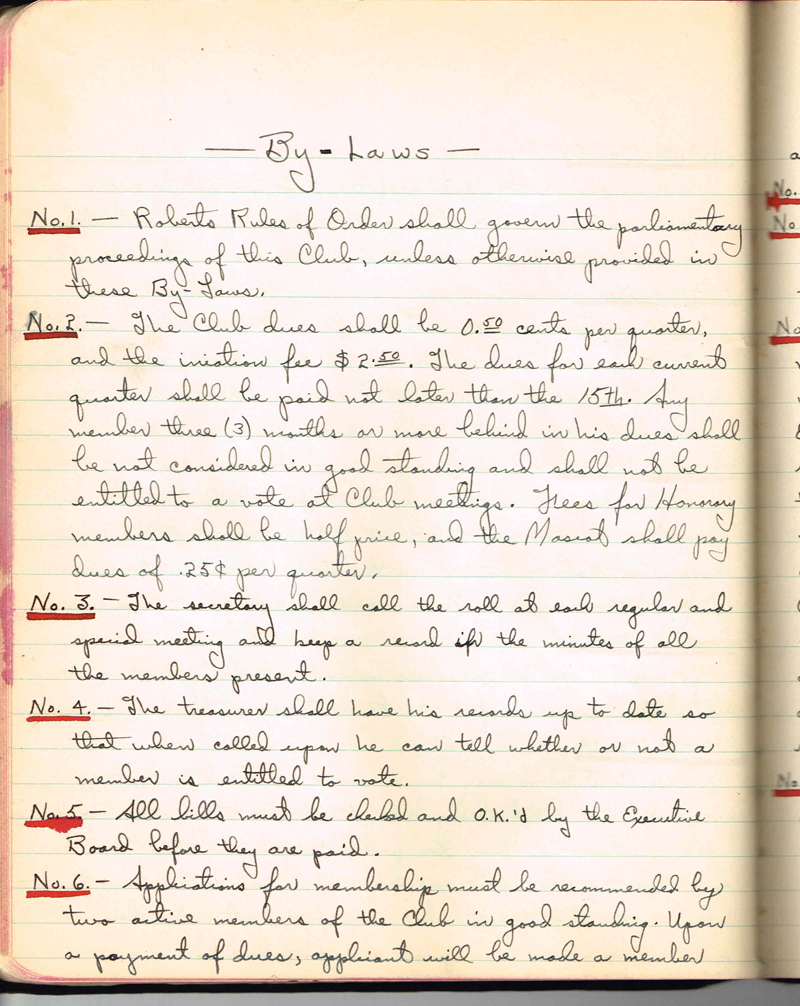 — By-Laws —
No.1. — Roberts Rules of Order shall govern the parliamentary
proceedings of this Club, unless otherwise provided in
these By-Laws.
No.2. — The Club dues shall be 0.50 cents per quarter,
and the iniation fee $2.50. The dues for each current
quarter shall be paid not later than the 15th. Any
member three (3) months or more behind in his dues shall
be not considered in good standing and shall not be
entitled to a vote at Club meetings. Fees for Honorary
members shall be half price, and the Mascot shall pay
dues of .25¢ per quarter.
No. 3. — The secretary shall call the roll at each regular and
special meeting and keep a record in the minutes of all
the members present.
No. 4. — The treasurer shall have his records up to date so
that when called upon he can tell whether or not a
member is entitled to vote.
No. 5 — All bills must be checked and O.K.'d by the Executive
Board before they are paid.
No. 6. — Applications for membership must be recommended by
two active members of the Club in good standing. Upon
a payment of dues, applicant will be made a member
a
No.
No
No
No